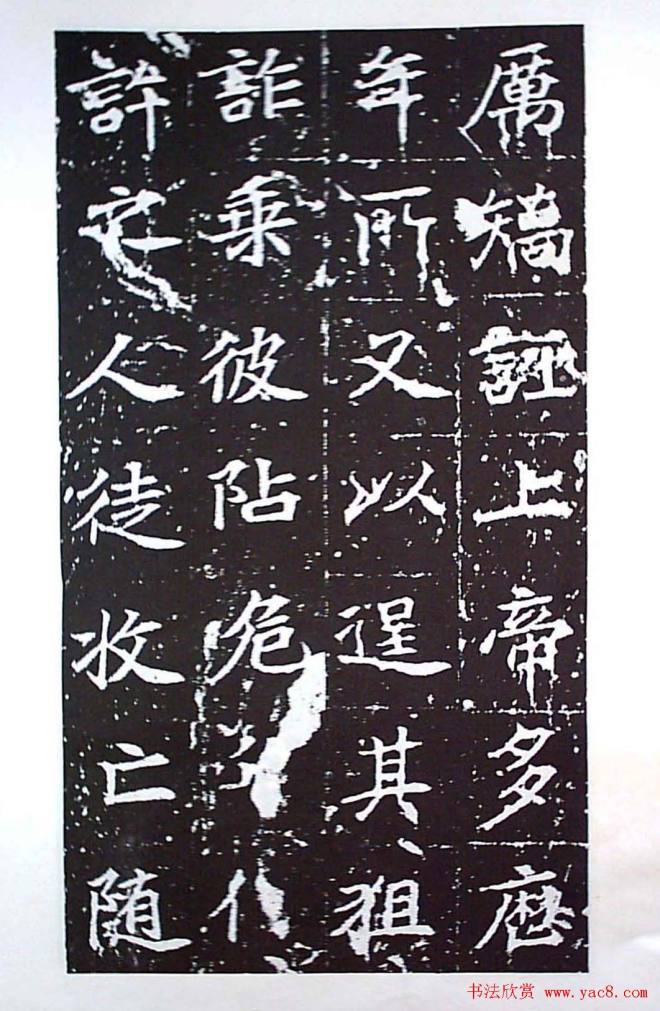 厲矯誣上帝多歷
年所又以逞其狙
詐乘彼阽危
詐之人徒收亡随
书法欣赏 www.yac8.com